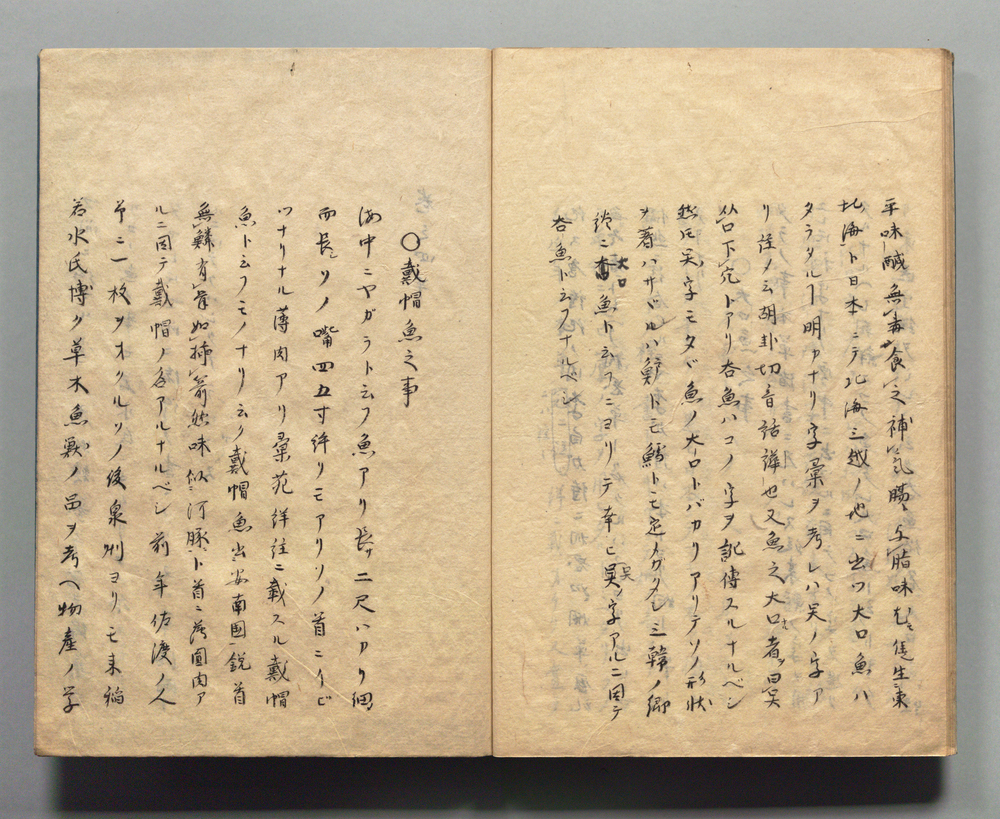 平味鹹無毒食之補氣腸与脂味尤佳生東
北海ト日本ニテ北海三越ノ地ニ出ツ大口魚ハ
タラタルヿ明カナリ字彙ヲ考レハ呉ノ字ア
リ註ノ云胡卦切音話譁也又魚之大口者曰呉
从口下宂トアリ夻魚ハコノ字ヲ記傳スルナルベシ
然圧呉字モタヾ魚ノ大口トバカリアリテソノ形状
ヲ著ハサザルハ鱈トモ定メガタシ三韓ノ郷
魚ト云フニヨリテ幸ニ呉ノ字アルニ因テ
大口
呉
夻魚ト云フナルベシ
〇戴帽魚之事
海中ニヤガラト云フ魚アリ長サ二尺ハカリ細
而長シソノ嘴四五寸許リモアリソノ首ニイビ
ツナリナル薄肉アリ彙苑詳註ニ載スル戴帽
魚ト云フモノナリ云ク戴帽魚出安南国鋭首
無鱗有骨如挿箭然味似河豚ト首ニ落圓肉ア
ルニ因テ戴帽ノ名アルナルベシ前年佐渡ノ人
予ニ一枚ヲオクルソノ後泉州ヨリモ来稲
若水氏博ク草木魚獣ノ品ヲ考ヘ物産ノ学